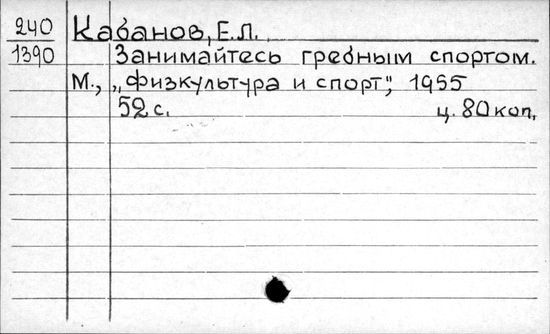 240 Кабанов, Е.Л.
1390 Занимайтесь гребным спортом.
М., „Физкультура и спорт”, 1955
52 с. ц. 80 коп.